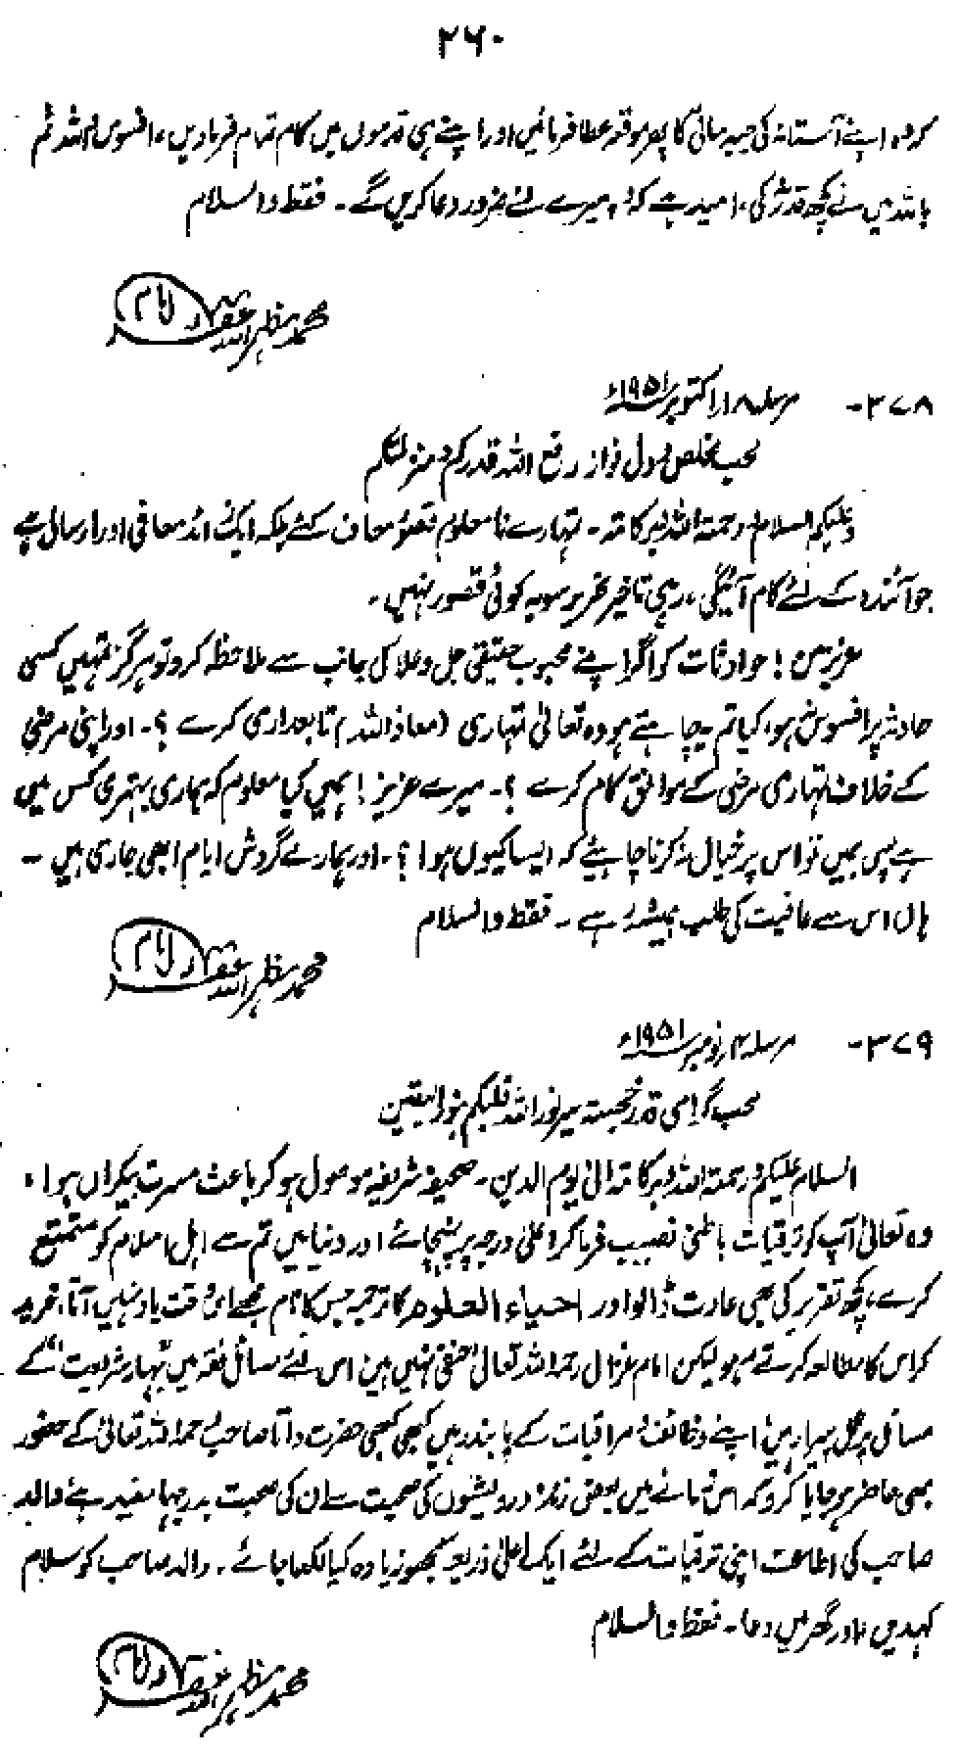 ۲۶۰
کر وہ اپنے آستانہ کی جبہ سائی کا پھر موقعہ عطا فرمائیں اور اپنے ہی قدموں میں کام تمام فرمادیں، افسوس واللہ ثم
باللہ میں نے کچھ قدر نہ کی، امید ہے کہ وہ میرے لئے ضرور دعا کریں گے۔ فقط والسلام
محمد مظہر اللہ غفرلہ امام
۳۷۸- مرسلہ ۱۸/ اکتوبر ۱۹۵۱ء
محب مخلص رسول نواز رفع اللہ قدرکم و منزلتکم
وعلیکم السلام ورحمۃ اللہ وبرکاتہ۔ تمہارے نامعلوم قصور معاف کئے بلکہ ایک زائد معافی اور ارسال ہے
جو آئندہ کے لئے کام آئیگی، رہی تاخیر تحریر سو یہ کوئی قصور نہیں۔
عزیز من! حوادثات کو اگر اپنے محبوب حقیقی جل وعلا کی جانب سے ملاحظہ کرو تو ہرگز تمہیں کسی
حادثہ پر افسوس نہ ہو، کیا تم یہ چاہتے ہو وہ تعالیٰ تمہاری (معاذ اللہ) تابعداری کرے ؟۔ اور اپنی مرضی
کے خلاف تمہاری مرضی کے موافق کام کرے ؟۔ میرے عزیز! ہمیں کیا معلوم کہ ہماری بہتری کس میں
ہے پس ہمیں تو اس پر خیال نہ کرنا چاہئیے کہ ایسا کیوں ہوا ؟۔ اور ہمارے گردش ایام ابھی جاری ہیں ۔
ہاں اس سے عافیت کی طلب ہمیشہ رہے ۔ فقط والسلام
محمد مظہر اللہ غفرلہ امام
۳۷۹- مرسلہ ۴/ نومبر ۱۹۵۱ء
محب گرامی قدر خجستہ سیر نور اللہ قلبکم بنور الیقین
السلام علیکم ورحمۃ اللہ وبرکاتہ الیٰ یوم الدین۔ صحیفہ شریفہ موصول ہوکر باعث مسرت بیکراں ہوا،
وہ تعالیٰ آپ کو ترقیات باطنی نصیب فرما کر اعلیٰ درجہ پر پہنچائے اور دنیا میں تم سے اہل اسلام کو متمتع
کرے، کچھ تقریر کی بھی عادت ڈالو اور احیاء العلوم کا ترجمہ جس کا نام مجھے اس وقت یاد نہیں آتا، خرید
کر اس کا مطالعہ کرتے رہو لیکن امام غزالی رحمہ اللہ تعالیٰ حنفی نہیں ہیں اس لئے مسائل فقہ میں "بہار شریعت" کے
مسائل پر عمل پیرا رہیں، اپنے وظائف و مراقبات کے پابند رہیں کبھی کبھی حضرت داتا صاحب رحمہ اللہ تعالیٰ کے حضور
بھی حاضر ہو جایا کرو کہ اس زمانے میں بعض زندہ درویشوں کی صحبت سے ان کی صحبت بدرجہا مفید ہے، والد
صاحب کی اطاعت اپنی ترقیات کے لئے ایک اعلیٰ ذریعہ سمجھو زیادہ کیا لکھا جائے۔ والد صاحب کو سلام
کہدیں اور گھر میں دعا۔ فقط والسلام
محمد مظہر اللہ غفرلہ امام